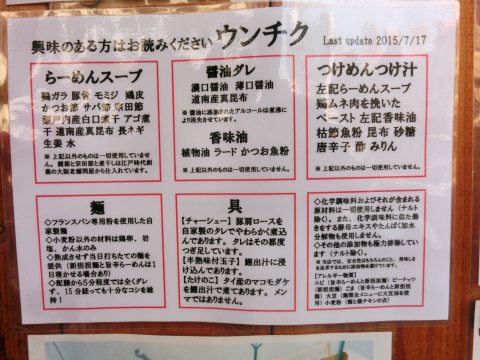 興味のある方はお読みください ウンチク Last update 2015/7/17
らーめんスープ
鶏ガラ 豚骨 モミジ 鶏皮
かつお節 サバ節 宗田節
瀬戸内産白口煮干 アゴ煮
干 道南産真昆布 長ネギ
生姜 水
※上記以外のものは一切使用していません。
醤油ダレ
濃口醤油 薄口醤油
道南産真昆布
※醤油に添加されたアルコールは煮沸により消失させています。
香味油
植物油 ラード かつお魚粉
※上記以外のものは一切使用していません。
つけめんつけ汁
左記らーめんスープ
鶏ムネ肉を挽いた
ペースト 左記香味油
枯節魚粉 昆布 砂糖
唐辛子 酢 みりん
※上記以外のものは一切使用していません。
麺
◇フランスパン専用粉を使用した自
家製麺
◇小麦粉以外の材料は鶏卵、岩
塩、かん水のみ
◇熟成させず当日打ちたての麺を
提供(新担担麺と旨辛らーめんは1
日寝かせる場合あり)
◇配膳から5分程度では全くダレ
ず、15分経っても十分なコシを維
持!
具
【チャーシュー】豚肩ロースを
自家製のタレでやわらかく煮込
んであります。タレはその都度
つぎ足しています。
【半熟味付玉子】鰹出汁に浸
け込んであります。
【たけのこ】タイ産のマコモダケ
を鰹出汁で煮てあります。メン
マではありません。
◇化学調味料およびそれが含まれる
原材料は一切使用しません(ナルト
除く)。また、化学調味料に似た働き
をする酵母エキスやたんぱく加水分
解物も使用しません。
◇その他の添加物も極力排除してい
ます(ナルト除く)。
【アレルギー物質】